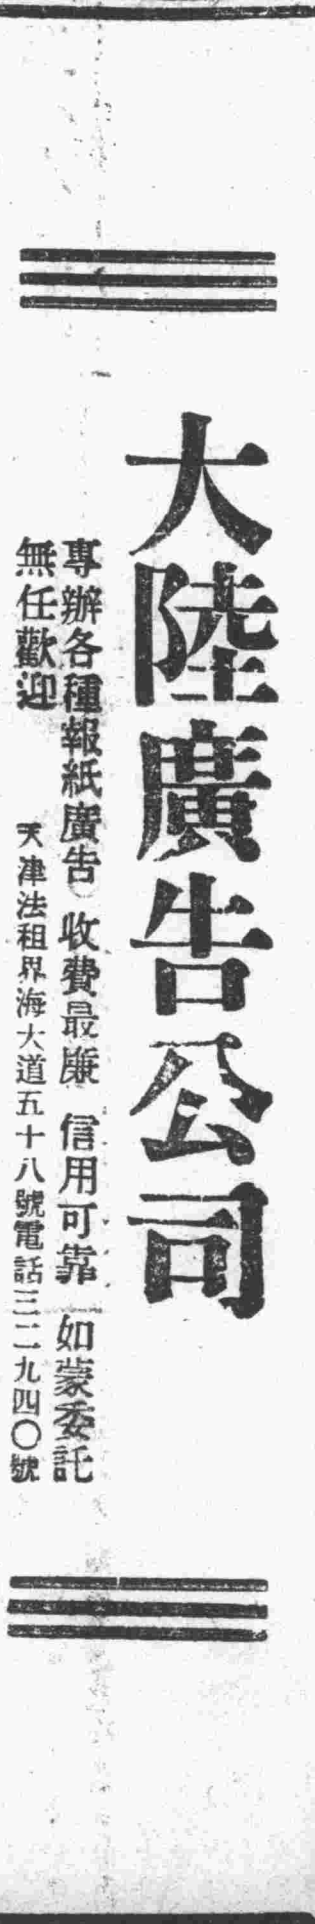 大陸廣告公司
專辦各種報紙廣告 收費最廉 信用可靠 如蒙委託
無任歡迎 天津法租界海大道五十八號電話三二九四〇號